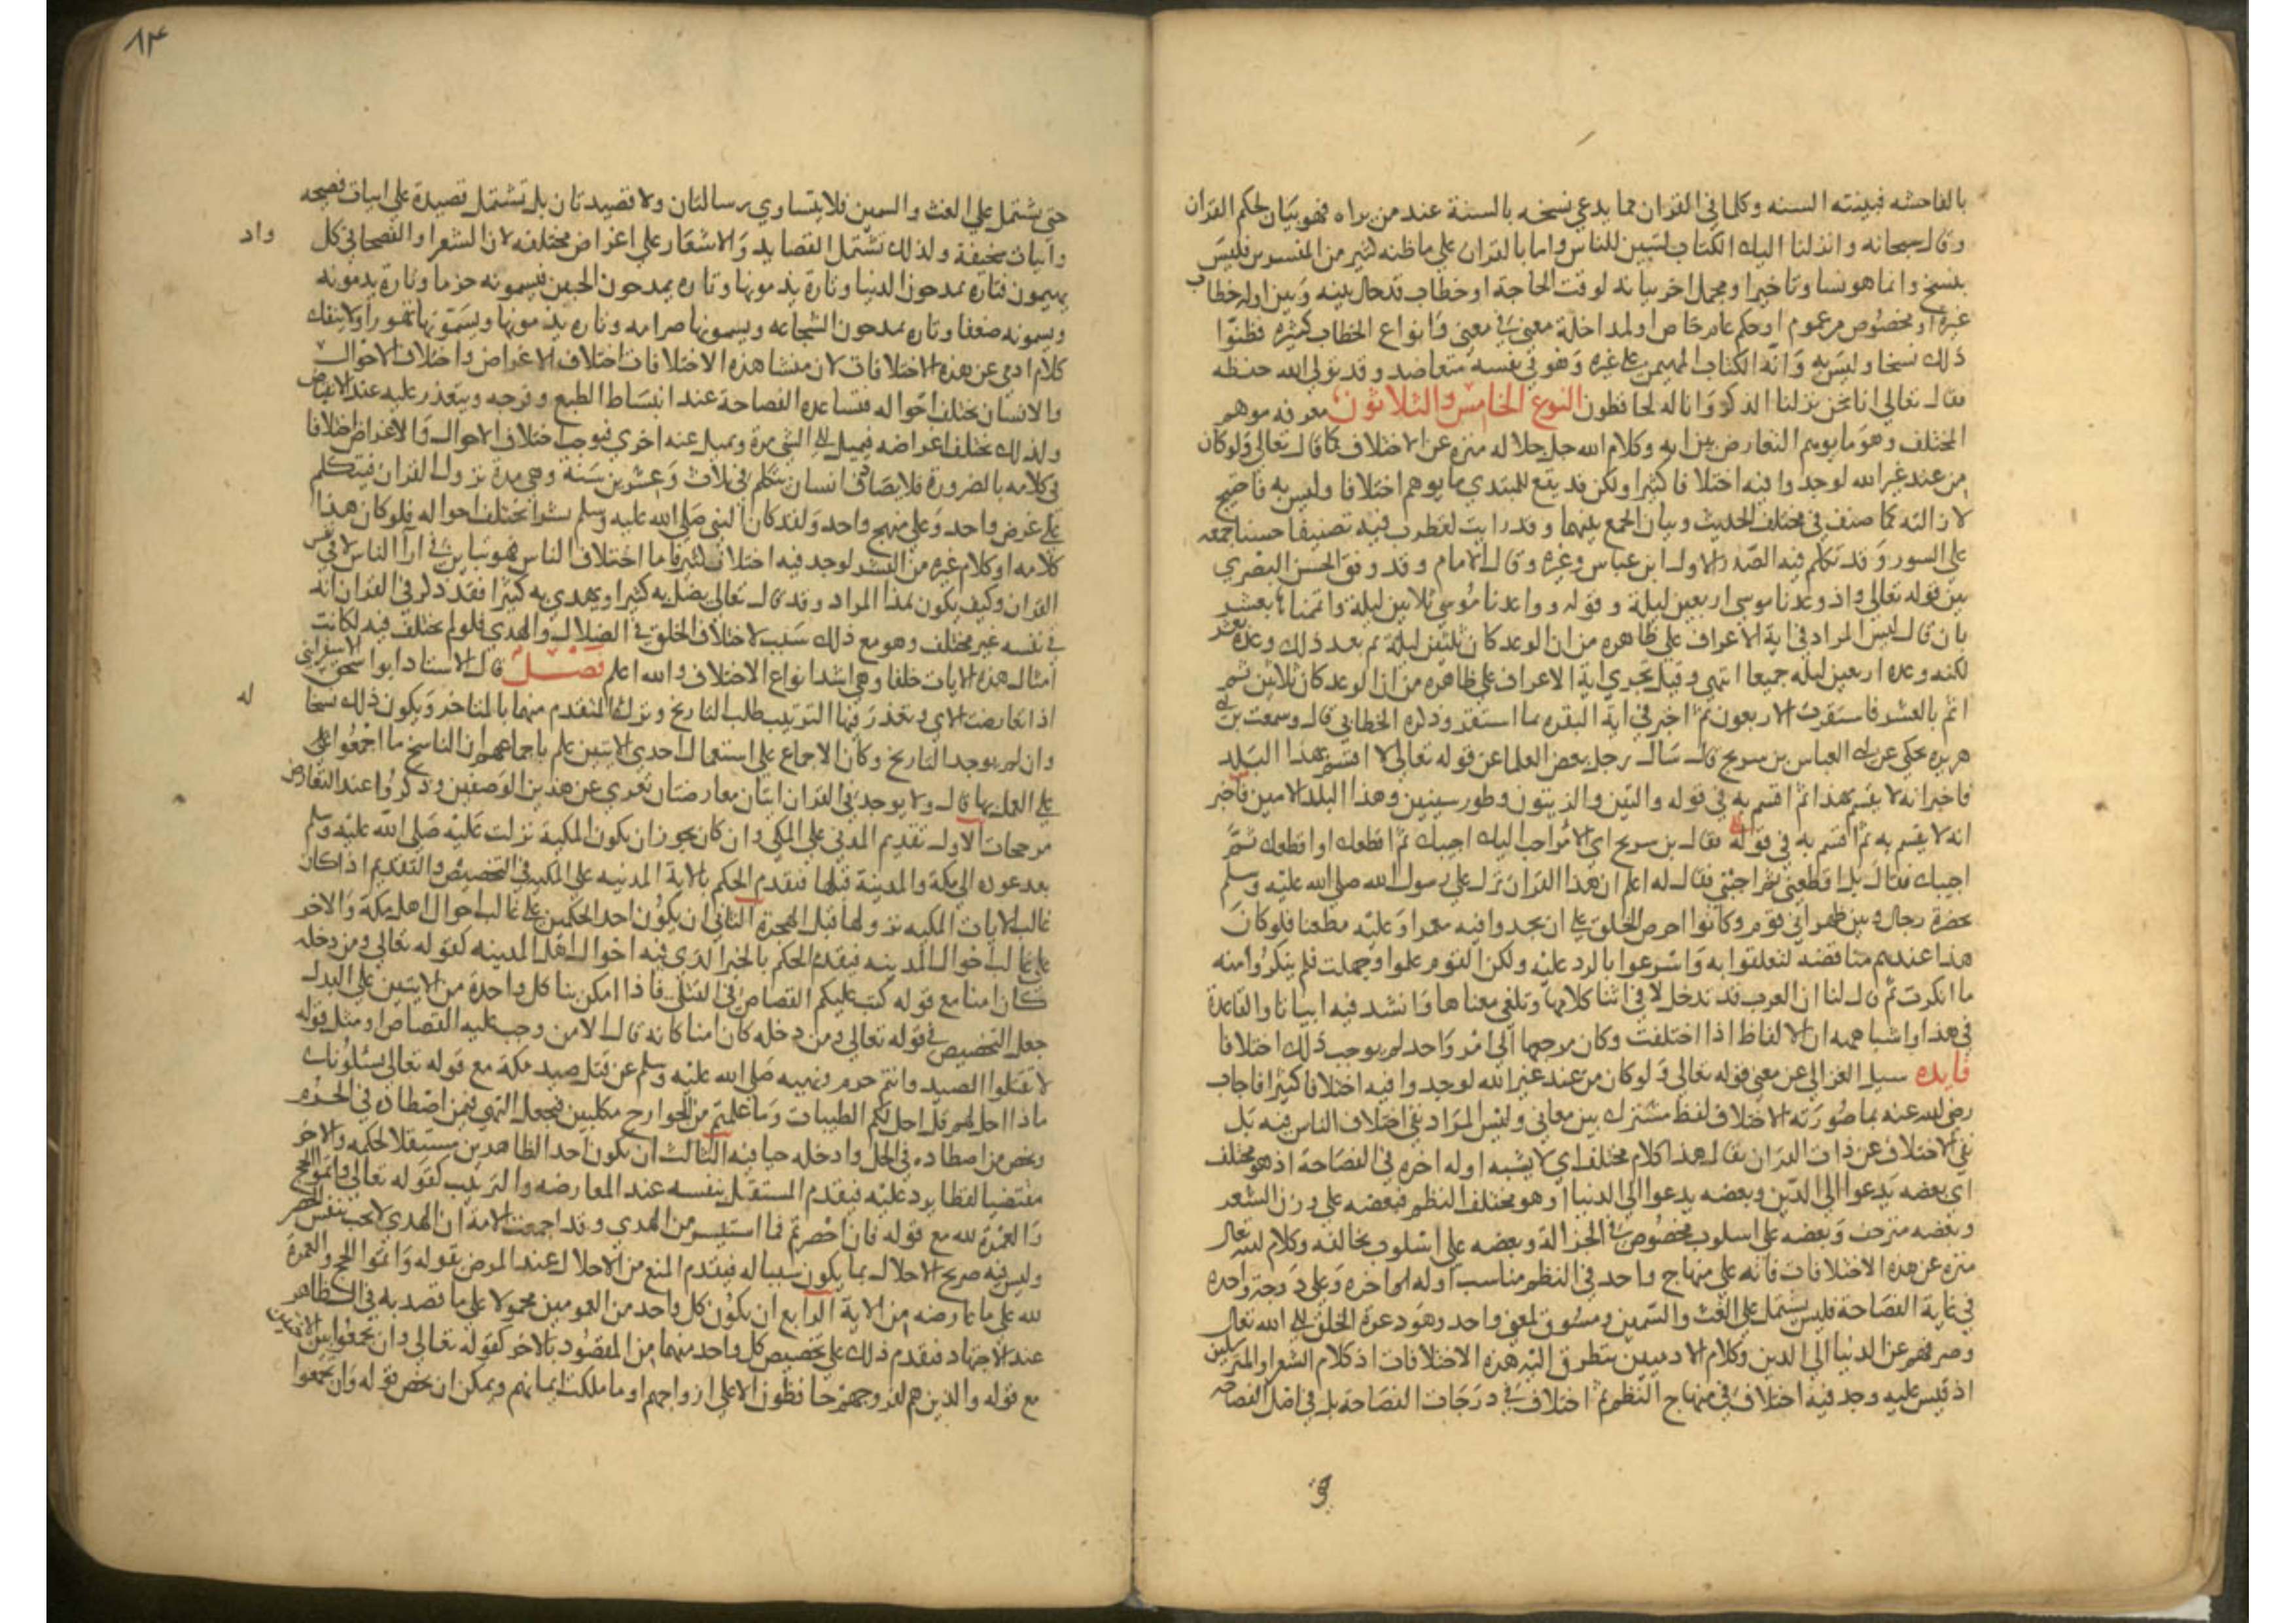 بالفاحشه فبينته السنه وكلما في القران مما يدعي نسخه بالسنة عند من يراه فهو بيان لحكم القران
وقال سبحانه وانزلنا اليك الكتاب لتبين للناس واما بالقران علي ما ظنه كثير من المفسرين فليس
بنسخ وانما هو نسا وتاخير او مجمل اخر بيانه لوقت الحاجة او خطاب قد حال بينه وبين اوله خطاب
غيره او مخصوص من عموم او حكم عام لخاص او لمداخلة معني في معني وانواع الخطاب كثيره فظنوا
ذلك نسخا وليس به وانه الكتاب المهيمن علي غيره وهو في نفسه متعاضد وقد تولي الله حفظه
فقال تعالي انا نحن نزلنا الذكر وانا له لحافظون النوع الخامس والثلاثون معرفه موهم
المختلف وهو ما يوهم التعارض بين ايه وكلام الله جل جلاله منزه عن الاختلاف كما قال تعالي ولو كان
من عند غير الله لوجدوا فيه اختلافا كثيرا ولكن قد يقع للمبتدي ما يوهم اختلافا وليس به فاحتيج
لازالته كما صنف في مختلف الحديث وبيان الجمع بينهما وقد رايت لقطرب فيه تصنيفا حسنا جمعه
علي السور وقد تكلم فيه الصدر الاول ابن عباس وغيره وقال الامام وقد وفق الحسن البصري
بين قوله تعالي واذ وعدنا موسي اربعين ليلة وقوله وواعدنا موسي ثلاثين ليلة واتممناها بعشر
بان قال ليس المراد في اية الاعراف علي ظاهره من ان الوعد كان ثلثين ليلة ثم بعد ذلك وعده بعشر
لكنه وعده اربعين ليله جميعا انتهي وقيل تجري اية الاعراف علي ظاهره من ان الوعد كان ثلاثين ثم
اتم بالعشر فاستقرت الاربعون ثم اخبر في اية البقره بما استقر وذكره الخطابي قال وسمعت بن ابي
هريره يحكي عن ابي العباس بن سريج قال سال رجل بعض العلما عن قوله تعالي لا اقسم بهذا البلد
فاخبر انه لا يقسم بهذا ثم اقسم به في قوله والتين والزيتون وطور سينين وهذا البلد الامين فاخبر
انه لا يقسم به ثم اقسم به في قوله فقال بن سريج اي الامرين احب اليك اجيبك ثم اقطعك او اقطعك ثم
اجيبك فقال بل اقطعني ثم اجبني فقال له اعلم ان هذا القران نزل علي رسول الله صلي الله عليه وسلم
بحضرة رجال وبين ظهراني قوم وكانوا احرص الخلق علي ان يجدوا فيه مغمزا وعليه مطعنا فلو كان
هذا عندهم مناقضه لتعلقوا به واسرعوا بالرد عليه ولكن القوم علموا وجهلت فلم ينكروا منه
ما انكرت ثم قال لنا ان العرب قد تدخل لا في اثنا كلامها وتلغي معناها وانشد فيه ابياتا والقاعدة
في هذا واشباهه ان الالفاظ اذا اختلفت وكان مرجعها الي امر واحد لم يوجب ذلك اختلافا
فايده سيل الغزالي عن معني قوله تعالي ولو كان من عند غير الله لوجدوا فيه اختلافا كثيرا فاجاب
رضي الله عنه بما صورته الاختلاف لفظ مشترك بين معاني وليس المراد نفي اختلاف الناس فيه بل
نفي الاختلاف عن ذات القران يقال هذا كلام مختلف اي لا يشبه اوله اخره في الفصاحة اذ هو مختلف
اي بعضه يدعوا الي الدين وبعضه يدعوا الي الدنيا او هو مختلف النظم فبعضه علي وزن الشعر
وبعضه منزحف وبعضه علي اسلوب مخصوص في الجزالة وبعضه علي اسلوب يخالفه وكلام الله تعالي
منزه عن هذه الاختلافات فانه علي منهاج واحد في النظم مناسب اوله اخره وعلي درجة واحده
في غاية الفصاحة فليس يشتمل علي الغث والسمين ومسوق لمعني واحد وهو دعوة الخلق الي الله تعالي
وصرفهم عن الدنيا الي الدين وكلام الادميين يتطرق اليه هذه الاختلافات اذ كلام الشعرا والمترسلين
اذ قيس عليه وجد فيه اختلاف في منهاج النظم ثم اختلاف في درجات الفصاحة بل في اصل الفصاحه
٨٣
حتي يشتمل علي الغث والسمين فلا يتساوي رسالتان ولا قصيدتان بل تشتمل قصيدة علي ابيات فصيحه
وابيات سخيفة ولذلك تشتمل القصايد والاشعار علي اغراض مختلفه لان الشعرا والفصحا في كل
واد
يهيمون فتارة يمدحون الدنيا وتارة يذمونها وتاره يمدحون الجبن فيسمونه حزما وتارة يذمونه
ويسمونه ضعفا وتاره يمدحون الشجاعه ويسمونها صرامه وتاره يذمونها ويسمونها تهورا ولا ينفك
كلام ادمي عن هذه الاختلافات لان منشا هذه الاختلافات اختلاف الاغراض واختلاف الاحوال
والانسان يختلف احواله فتساعده الفصاحة عند انبساط الطبع وفرحه ويتعذر عليه عند الانقباض
ولذلك تختلف اغراضه فيميل الي الشي مرة ويميل عنه اخري فيوجب اختلاف الاحوال والاغراض اختلافا
في كلامه بالضرورة فلا يصادف انسان يتكلم في ثلاث وعشرين سنة وهي مدة نزول القران فيتكلم
علي غرض واحد وعلي منهج واحد ولقد كان النبي صلي الله عليه وسلم بشرا تختلف احواله فلو كان هذا
كلامه او كلام غيره من البشر لوجد فيه اختلاف كثير فاما اختلاف الناس فهو تباين في ارا الناس لا في نفس
القران وكيف يكون هذا المراد وقد قال تعالي يضل به كثيرا ويهدي به كثيرا فقد ذكر في القران انه
في نفسه غير مختلف وهو مع ذلك سبب لاختلاف الخلق في الضلال والهدي فلو لم يختلف فيه لكانت
امثال هذه الايات خلفا وهي اشد انواع الاختلاف والله اعلم فصل قال الاستاذ ابو اسحق الاسفرايني
اذا تعارضت الاي وتعذر فيها الترتيب طلب التاريخ وترك المتقدم منهما بالمتاخر ويكون ذلك نسخا
له
وان لم يوجد التاريخ وكان الاجماع علي استعمال احدي الايتين علم باجماعهم ان الناسخ ما اجمعوا علي
علي العمل بها قال ولا يوجد في القران ايتان متعارضتان تعري عن هذين الوصفين وذكروا عند التعارض
مرجحات الاول تقديم المدني علي المكي وان كان يجوز ان يكون المكية نزلت عليه صلي الله عليه وسلم
بعد عوده الي مكة والمدينة قبلها فيقدم الحكم بالاية المدنيه علي المكيه في التخصيص والتقديم اذ كان
غالب الايات المكيه نزولها قبل الهجرة الثاني ان يكون احد الحكمين علي غالب احوال اهل مكة والاخر
علي غالب احوال المدينه فيقدم الحكم بالخبر الذي فيه احوال اهل المدينه كقوله تعالي ومن دخله
كان امنا مع قوله كتب عليكم القصاص في القتلي فاذا امكن بنا كل واحدة من الايتين علي البدل
جعل التخصيص في قوله تعالي ومن دخله كان امنا كانه قال الا من وجب عليه القصاص ومثل قوله
لا تقتلوا الصيد وانتم حرم ونهيه صلي الله عليه وسلم عن قتل صيد مكة مع قوله تعالي يسئلونك
ماذا احل لهم قل احل لكم الطيبات وما علمتم من الجوارح مكلبين فجعل النهي فيمن اصطاده في الحرم
وخص من اصطاده في الحل وادخله حيا فيه الثالث ان يكون احد الظاهرين مستقلا بحكمه والاخر
مقتضيا لفظا يرد عليه فيقدم المستقل بنفسه عند المعارضه والترتيب كقوله تعالي واتموا الحج
والعمرة لله مع قوله فان احصرتم فما استيسر من الهدي وقد اجمعت الامة ان الهدي لا يجب بنفس الحصر
وليس فيه صريح الاحلال بما يكون سببا له فيقدم المنع من الاحلال عند المرض بقوله واتموا الحج والعمرة
لله علي ما عارضه من الاية الرابع ان يكون كل واحد من العمومين محمولا علي ما قصد به في الظاهر
عند الاجتهاد فيقدم ذلك علي تخصيص كل واحد منهما من المقصود بالاخر كقوله تعالي وان تجمعوا بين الاختين
مع قوله والذين هم لفروجهم حافظون الا علي ازواجهم او ما ملكت ايمانهم ويمكن ان يخص قوله وان تجمعوا